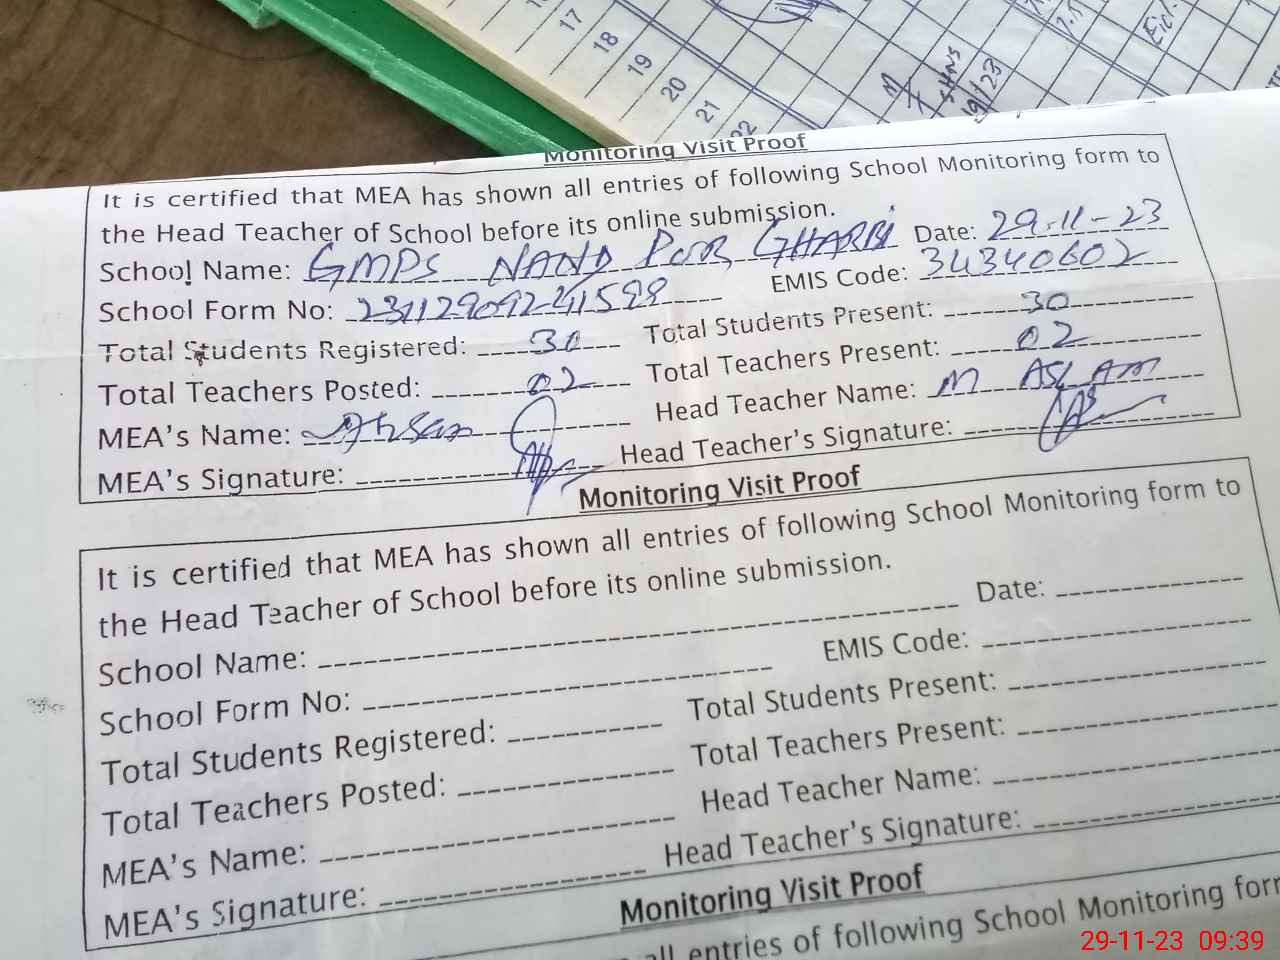 17
18
19
20
21
22
M
SHNS
19/23
Monitoring Visit Proof
It is certified that MEA has shown all entries of following School Monitoring form to
the Head Teacher of School before its online submission.
School Name: GMPS NAND POUR GHARBI Date: 29-11-23
School Form No: 23112909241598 EMIS Code: 34340602
Total Students Registered: 30 Total Students Present: 30
Total Teachers Posted: 02 Total Teachers Present: 02
MEA's Name: Ahsan Head Teacher Name: M ASLAM
MEA's Signature: Head Teacher's Signature:
Monitoring Visit Proof
It is certified that MEA has shown all entries of following School Monitoring form to
the Head Teacher of School before its online submission.
School Name: Date:
School Form No: EMIS Code:
Total Students Registered: Total Students Present:
Total Teachers Posted: Total Teachers Present:
MEA's Name: Head Teacher Name:
MEA's Signature: Head Teacher's Signature:
Monitoring Visit Proof
all entries of following School Monitoring form
29-11-23 09:39